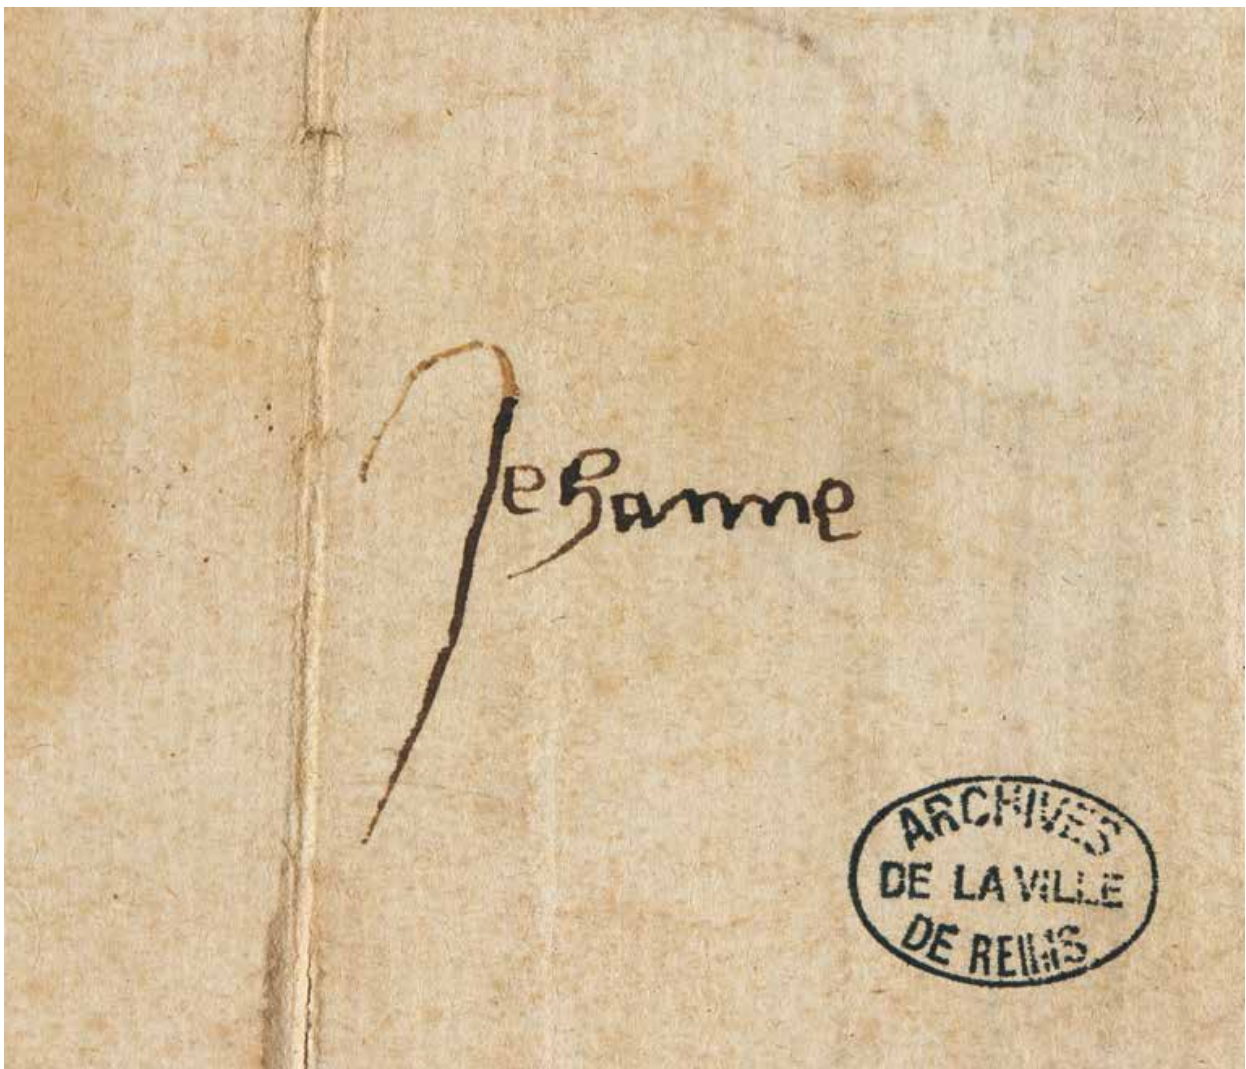 Jehanne
ARCHIVES
DE LA VILLE
DE REIMS